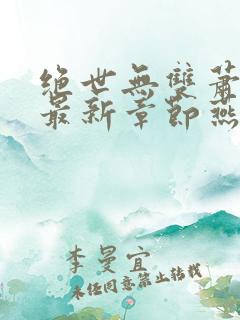 绝世無雙蕭
最新章節燕
李曼宜
未经同意禁止转载